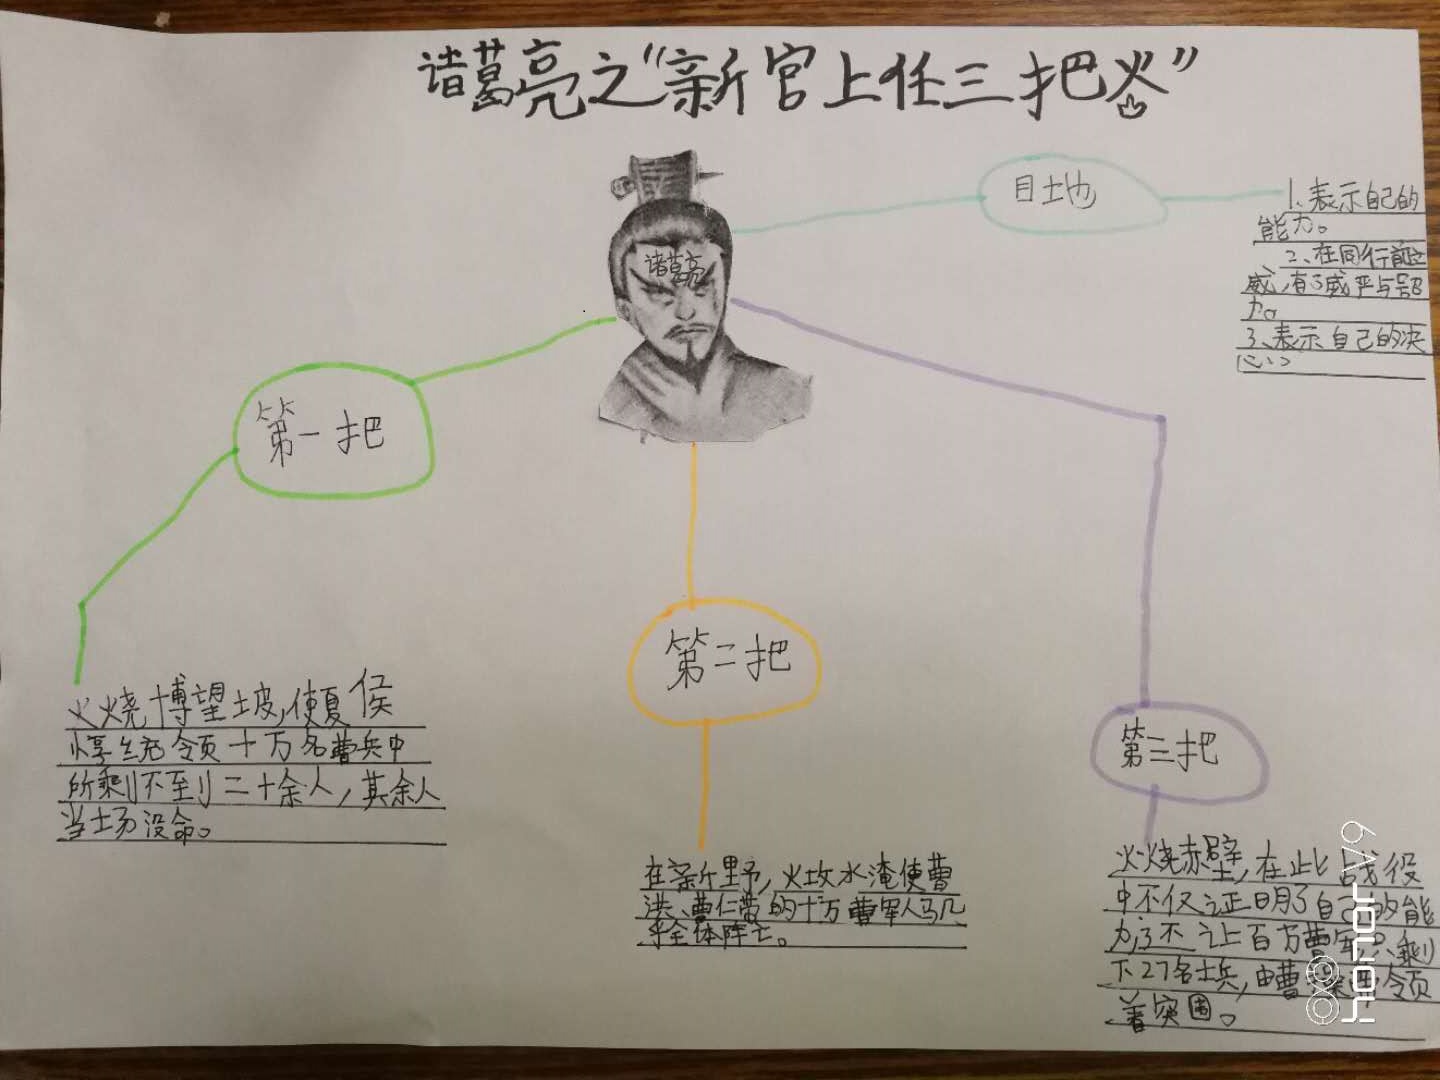 诸葛亮之“新官上任三把火”
诸葛亮
目地
1、表示自己的
能力。
2、在同行前立
威,有了威严与号召
力。
3、表示自己的决
心
第一把
火烧博望坡,使夏侯
惇统领十万名曹兵中
所剩不到二十余人，其余人
当场没命。
第二把
在新野，火攻水淹使曹
洪、曹仁带的十万曹军人马几
乎全体阵亡。
第三把
火烧赤壁，在此战役
中不仅证明了自己的能
力,了不让百万曹军只剩
下27名士兵，由曹操带领
着突围。
honor 9X